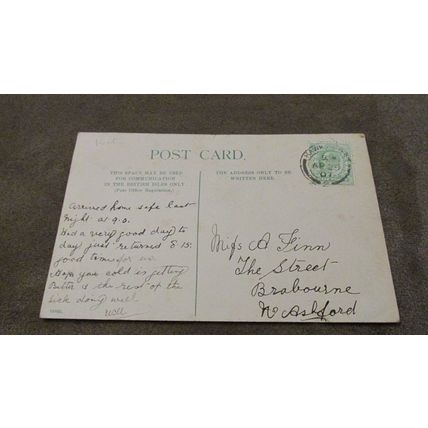 Kent
POST CARD.
THIS SPACE MAY BE USED
FOR COMMUNICATION
IN THE BRITISH ISLES ONLY
(Post Office Regulation).
THE ADDRESS ONLY TO BE
WRITTEN HERE.
Arrived home safe last
night at 9.0.
Had a very good day to
day just returned 8 15.
good time for us
Hope you cold is getting
Better is the rest of the
sick doing well
Miss A Finn
The Street
Brabourne
Nr Ashford